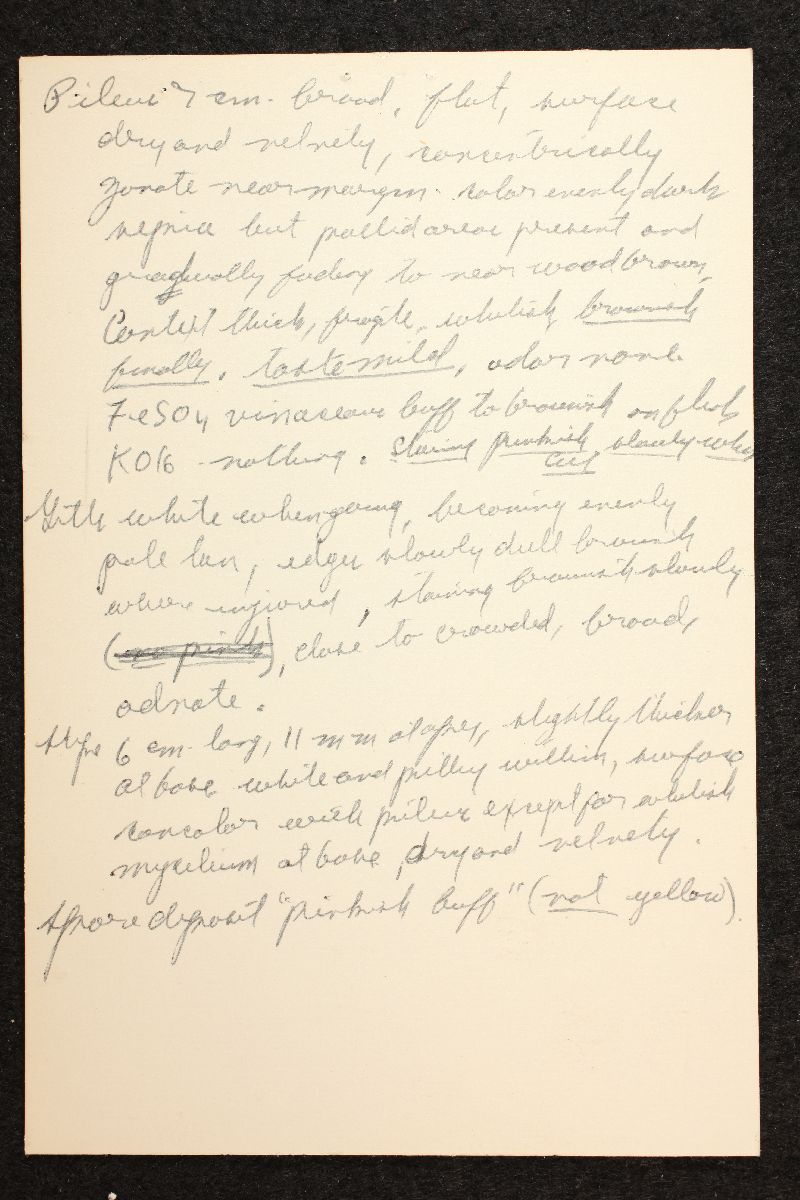 Pileus 7 cm. broad, flat, surface
dry and velvety, concentrically
zonate near margin. color evenly dark
sepia but pallid areas present and
gradually fading to near wood brown,
Context thick, fragile, whitish, brownish
finally, taste mild, odor none
FeSO4 vinaceous buff to brownish on flesh
KOH nothing. staining pinkish slowly when
cut
Gills white when young, becoming evenly
pale tan, edges slowly dull brownish
where injured, staining brownish slowly
(no pink), close to crowded, broad,
adnate.
Stipe 6 cm. long, 11 mm at apex, slightly thicker
at base white and pithy within, surface
concolor with pileus except for whitish
mycelium at base, dry and velvety.
Spore deposit "pinkish buff" (not yellow).